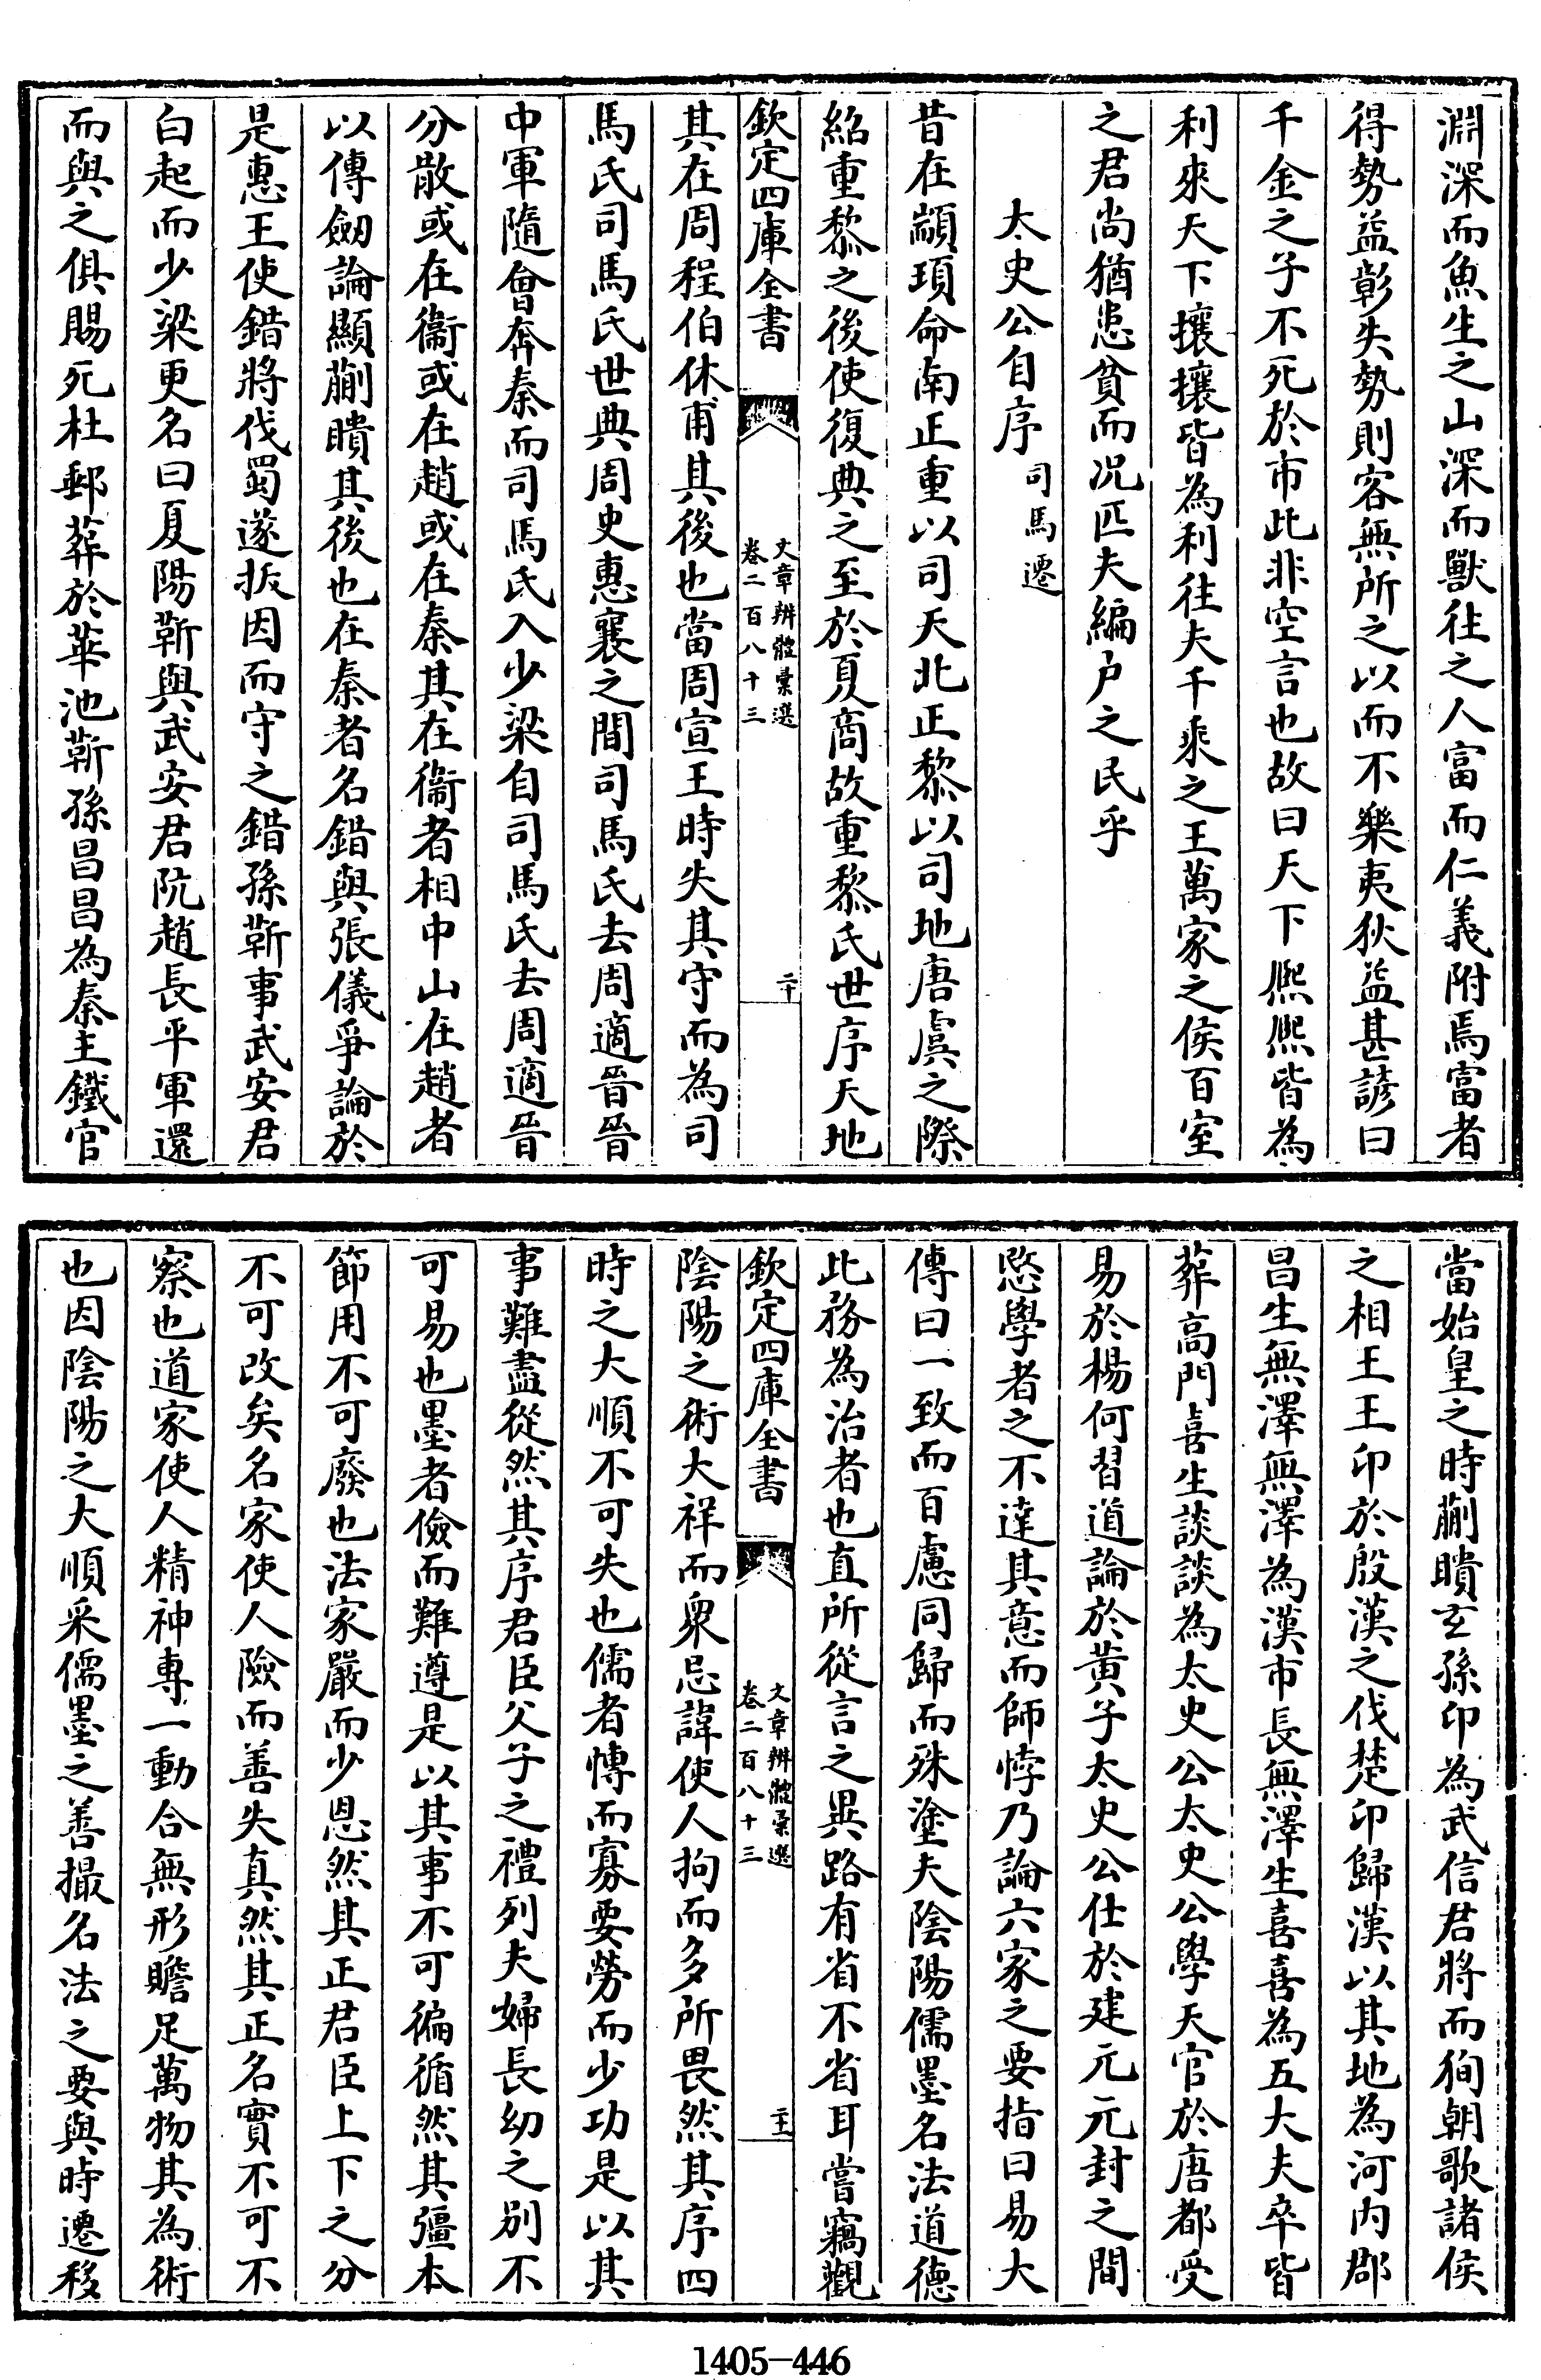 淵深而魚生之山深而獸往之人富而仁義附焉富者
得勢益彰失勢則客無所之以而不樂夷狄益甚諺曰
千金之子不死於市此非空言也故曰天下熙熙皆為
利來天下攘攘皆為利往夫千乘之王萬家之侯百室
之君尚猶患貧而况匹夫編户之民乎
太史公自序司馬遷
昔在顓頊命南正重以司天北正黎以司地唐虞之際
紹重黎之後使復典之至於夏商故重黎氏世序天地
欽定四庫全書
文章辨體彙選
卷二百八十三
二十
其在周程伯休甫其後也當周宣王時失其守而為司
馬氏司馬氏世典周史惠襄之間司馬氏去周適晉晉
中軍隨會奔秦而司馬氏入少梁自司馬氏去周適晉
分散或在衞或在趙或在秦其在衞者相中山在趙者
以傳劒論顯蒯聵其後也在秦者名錯與張儀爭論於
是惠王使錯將伐蜀遂拔因而守之錯孫靳事武安君
白起而少梁更名曰夏陽靳與武安君阬趙長平軍還
而與之俱賜死杜郵葬於華池靳孫昌昌為秦主鐵官
當始皇之時蒯聵玄孫卬為武信君將而徇朝歌諸侯
之相王王卬於殷漢之伐楚卬歸漢以其地為河内郡
昌生無澤無澤為漢市長無澤生喜喜為五大夫卒皆
葬高門喜生談談為太史公太史公學天官於唐都受
易於楊何習道論於黄子太史公仕於建元元封之間
愍學者之不達其意而師悖乃論六家之要指曰易大
傳曰一致而百慮同歸而殊塗夫陰陽儒墨名法道德
此務為治者也直所從言之異路有省不省耳嘗竊觀
欽定四庫全書
文章辨體彙選
卷二百八十三
二十一
陰陽之術大祥而衆忌諱使人拘而多所畏然其序四
時之大順不可失也儒者博而寡要勞而少功是以其
事難盡從然其序君臣父子之禮列夫婦長幼之别不
可易也墨者儉而難遵是以其事不可徧循然其彊本
節用不可廢也法家嚴而少恩然其正君臣上下之分
不可改矣名家使人險而善失真然其正名實不可不
察也道家使人精神專一動合無形贍足萬物其為術
也因陰陽之大順采儒墨之善撮名法之要與時遷移
1405-446